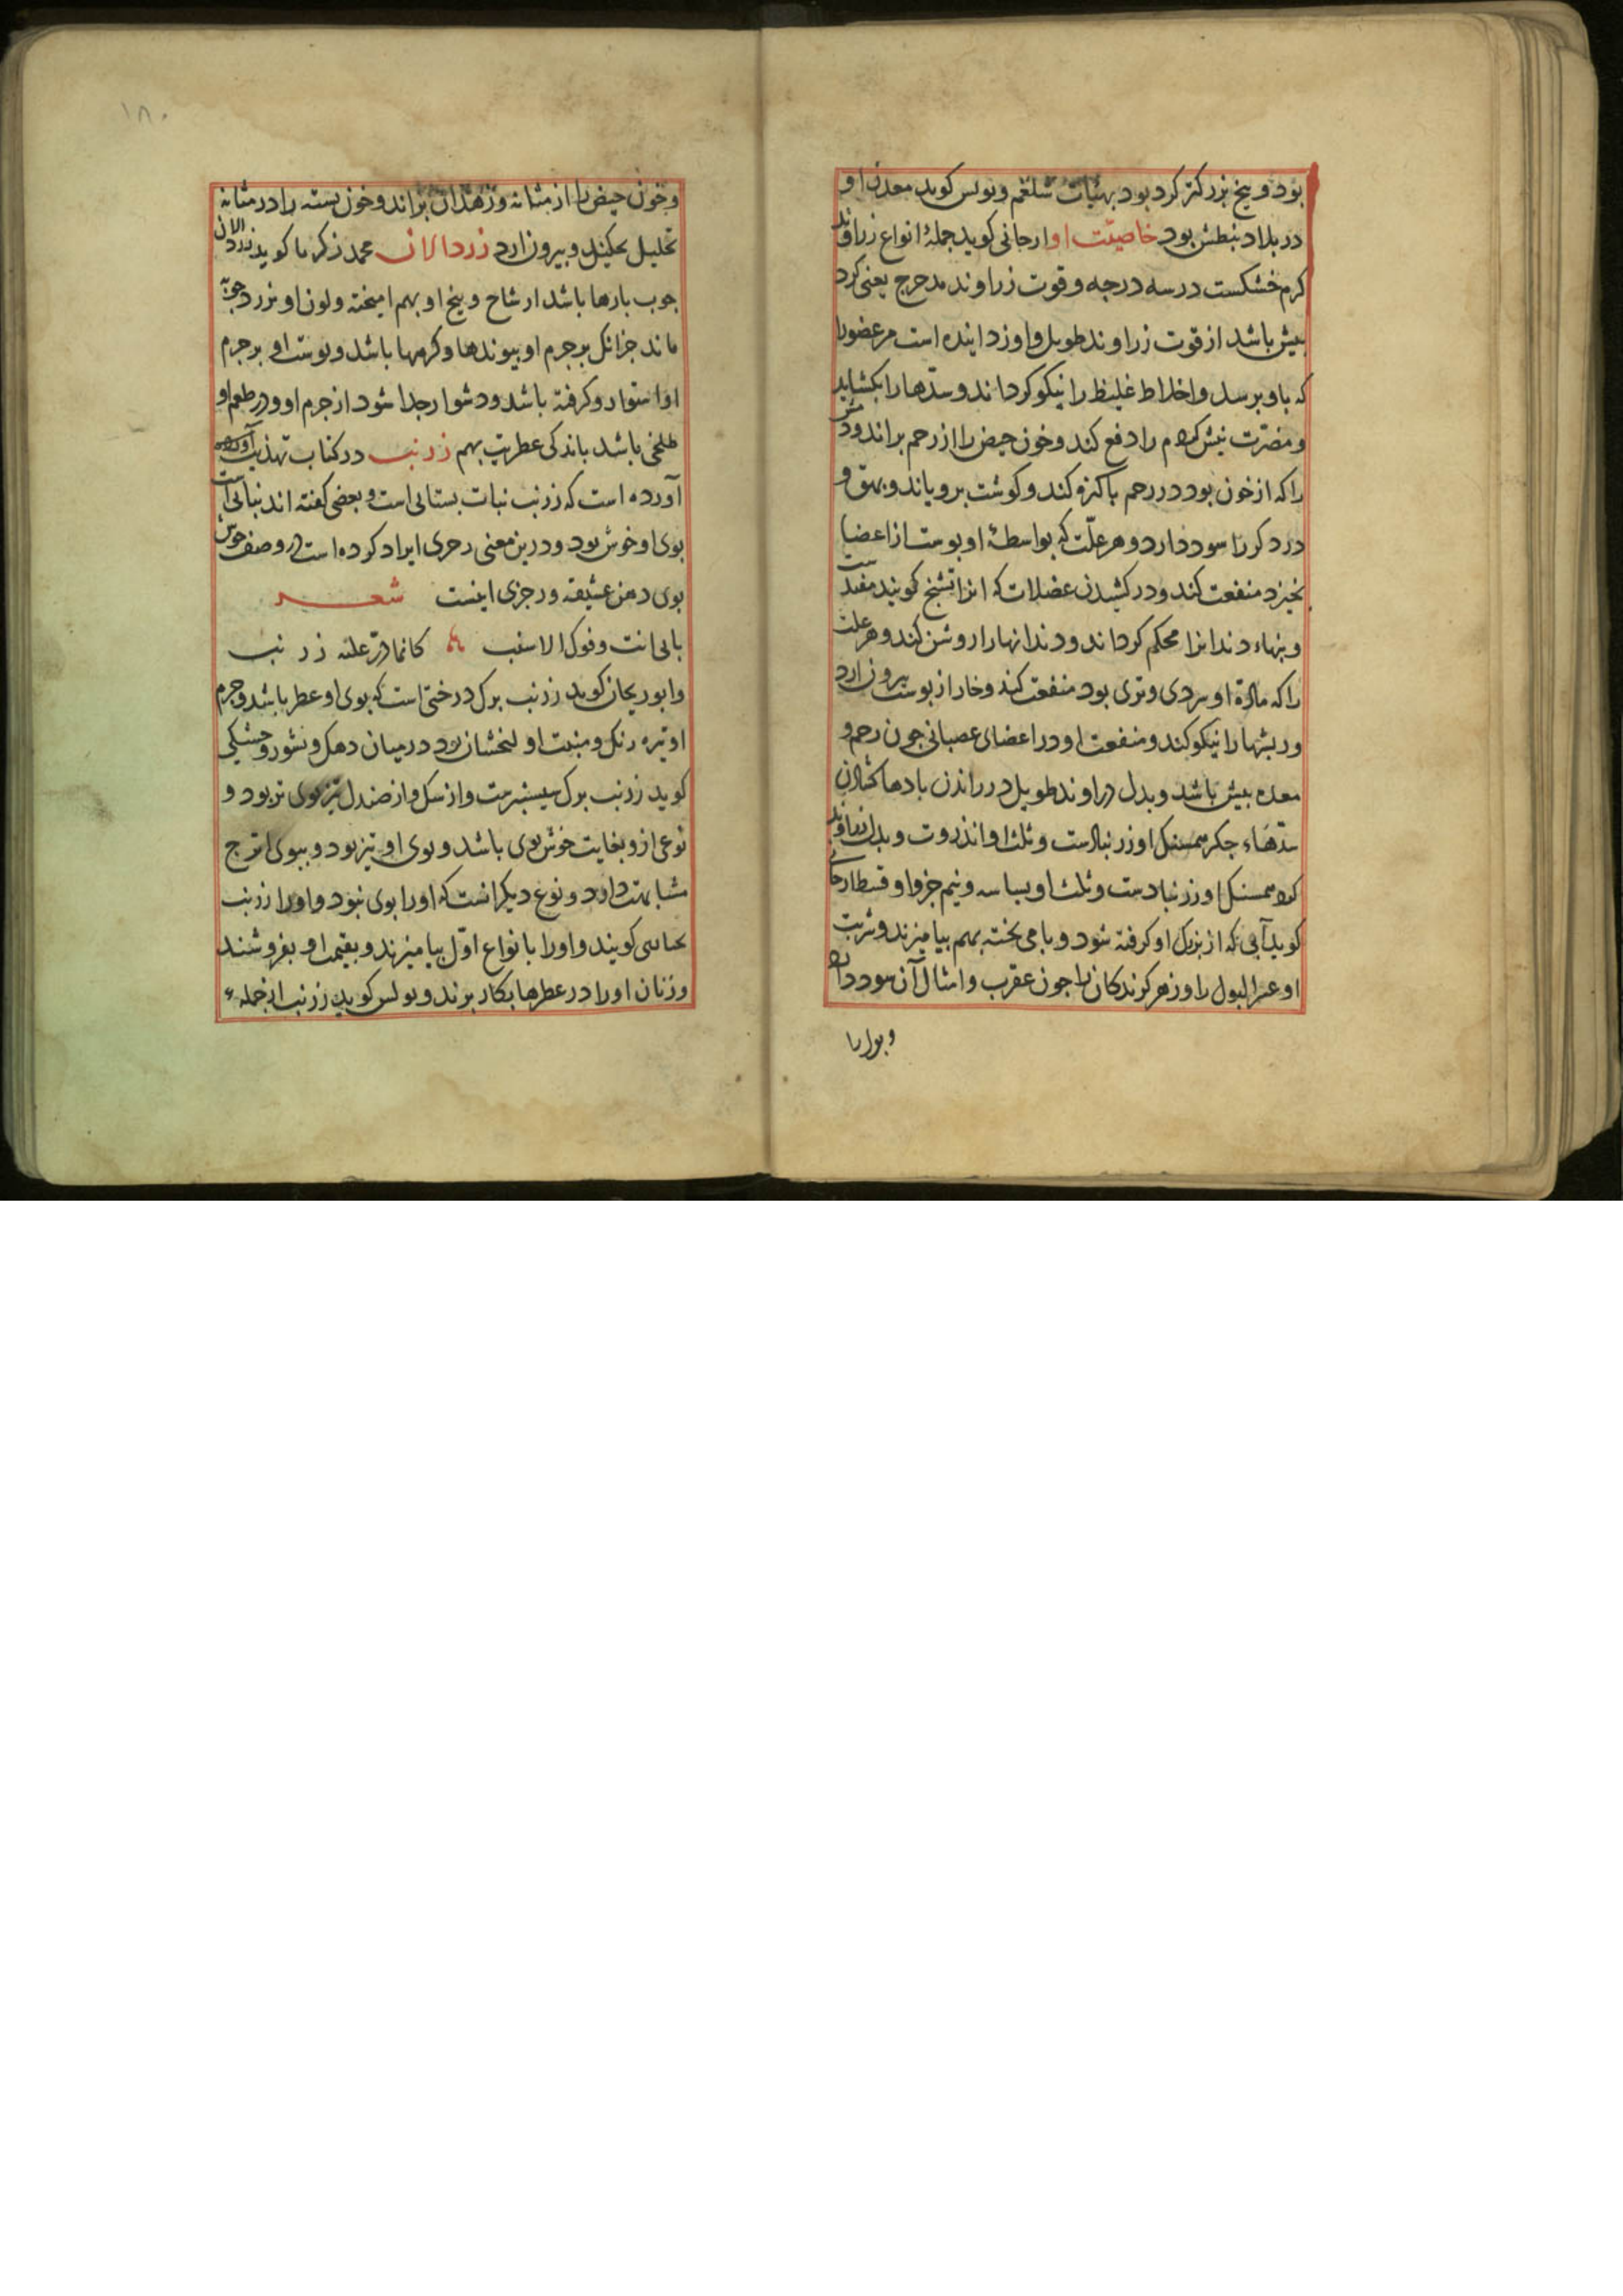 بود و بیخ بزرکتر کرد بود بهیات شلغم و بولس کوید معدن او
در بلاد نبطش بود خاصیّت او ارجانی کوید جملهٔ انواع زراوند
کرم خشکست در سه درجه و قوت زراوند مدحرج یعنی کرد
بیش باشد از قوت زراوند طویل و او زداینده است مر عضورا
که باو برسد و اخلاط غلیظ را نیکو کرداند و سدّها را بکشاید
و مضرّت نیش کژدم را دفع کند و خون حیض را از رحم براند و
را که از خون بود در رحم باکیزه کند و کوشت برویاند و بهق و
درد کرده را سود دارد و هر علّت که بواسطهٔ او بوست از اعضا
بخیزد منفعت کند و در کشیدن عضلات که انرا تشنج کویند مفیدست
و بنهاء دندانرا محکم کرداند و دندانهارا روشن کند و هر علت
را که مادّهٔ او سردی و تری بود منفعت کند و خار از بوست بیرون ارد
و ریشهارا نیکو کند و منفعت او در اعضای عصبانی جون رحم و
معده بیش باشد و بدل زراوند طویل در راندن بادها کشادن
سدّهاء جکر همسنک او زرنبادست و ثلث او انذروت و بدل زراوند
کرد همسنک او زرنبادست و ثلث او بسباسه و نیم جزو او قسط ارجانی
کوید آبی که از برک او کرفته شود و با می بخته بهم بیامیزند و شربت
او عسر البول را و زهر کزندکان را جون عقرب و امثال آن سود دارد
و بول را
۱۸۰
و خون حیض را از مثانه و زهدان براند و خون بسته را در مثانه
تحلیل بکند و بیرون ارد زردالان محمد زکریا کوید زردالان
جوب بارها باشد از شاخ و بیخ او بهم امیخته و لون او بزردجوبه
ماند جز انک بر جرم او بیوندها و کرهها باشد و بوست او بر جرم
او استوار و کرفته باشد و دشوار جدا شود از جرم او و در طعم او
طلخی باشد باندکی عطریت بهم زرنب در کتاب تهذیب
آورده است که زرنب نبات بستانی است و بعضی کفته اند نباتی است
بوی او خوش بود و درین معنی رجزی ایراد کرده است در وصف خوش
بوی دهن عشیقه و رجزی اینست شعر
بابی انت و فوک الاشنب کانما ذرّ علیه زرنب
و ابوریحان کوید زرنب برک درختی است که بوی او عطر باشد و جرم
او تیره رنک و منبت او لنخشان بود در میان دهک و نشور و حشکی
کوید زرنب برک سیسنبرست و از سک و از صندل تیزبوی تر بود و
نوعی ازو بغایت خوش بوی باشد و بوی او تیز بود و ببوی اترج
مشابهت دارد و نوع دیکر انست که اورا بوی نبود و اورا زرنب
کویند و اورا با نواع اوّل بیامیزند و بقیمت او بفروشند
و زنان اورا در عطرها بکار برند و بولس کوید زرنب از جملهٔ